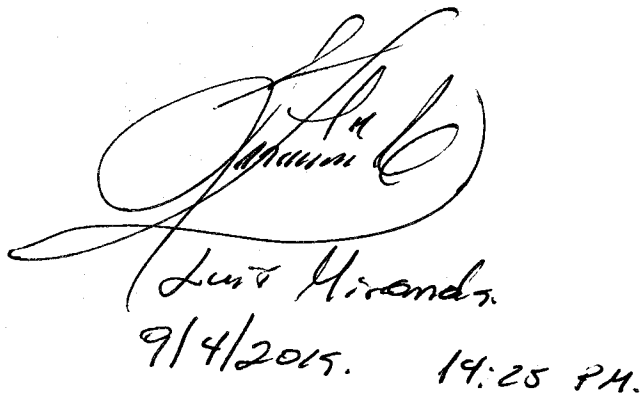 Luis Miranda.
9/4/2019. 14:25 PM.